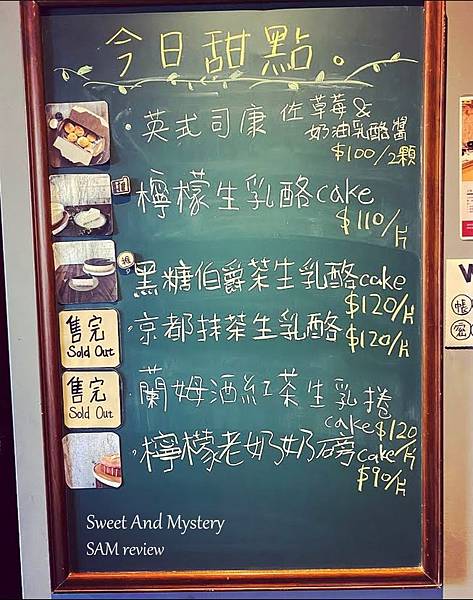 今日甜點。
英式司康 佐草莓&
奶油乳酪醬
$100/2顆
檸檬生乳酪cake
$110/片
推
黑糖伯爵茶生乳酪cake
$120/片
售完
Sold Out
京都抹茶生乳酪
$120/片
售完
Sold Out
蘭姆酒紅茶生乳捲
cake $120
/片
檸檬老奶奶磅cake
$90/片
Sweet And Mystery
SAM review